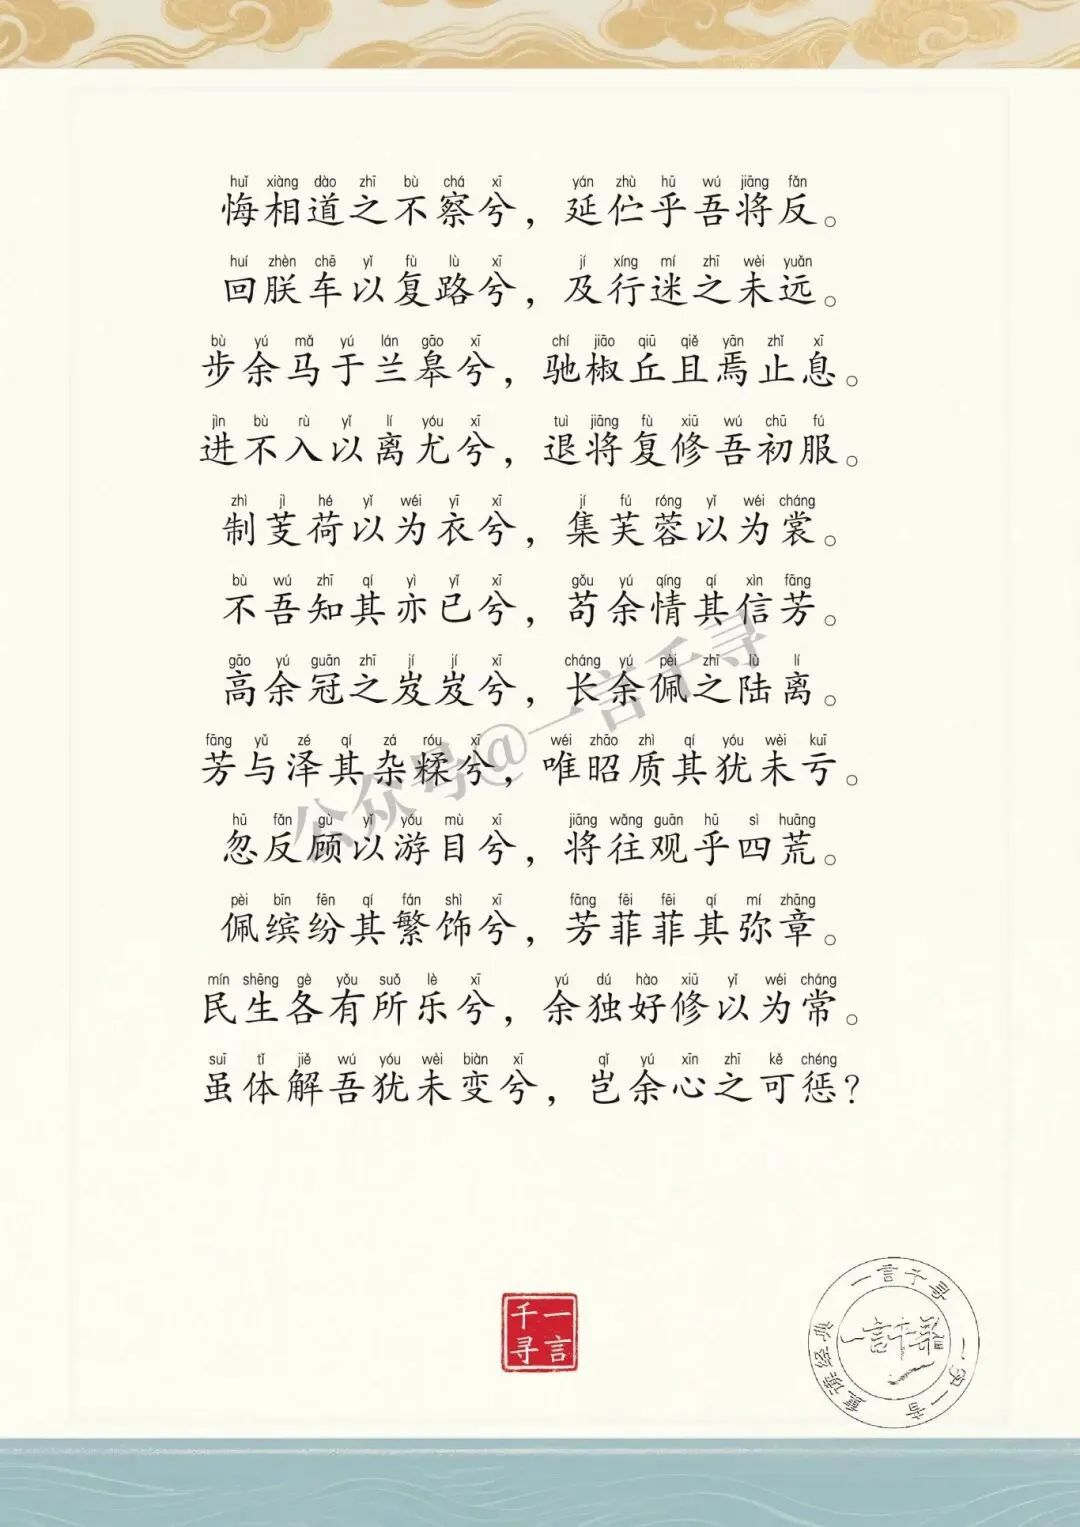 huǐ xiàng dào zhī bù chá xī yán zhù hū wú jiāng fǎn
悔相道之不察兮，延伫乎吾将反。
huí zhèn chē yǐ fù lù xī jí xíng mí zhī wèi yuǎn
回朕车以复路兮，及行迷之未远。
bù yú mǎ yú lán gāo xī chí jiāo qiū qiě yān zhǐ xī
步余马于兰皋兮，驰椒丘且焉止息。
jìn bù rù yǐ lí yóu xī tuì jiāng fù xiū wú chū fú
进不入以离尤兮，退将复修吾初服。
zhì jì hé yǐ wéi yī xī jí fú róng yǐ wéi cháng
制芰荷以为衣兮，集芙蓉以为裳。
bù wú zhī qí yì yǐ xī gǒu yú qíng qí xìn fāng
不吾知其亦已兮，苟余情其信芳。
gāo yú guān zhī jí jí xī cháng yú pèi zhī lù lí
高余冠之岌岌兮，长余佩之陆离。
fāng yǔ zé qí zá róu xī wéi zhāo zhì qí yóu wèi kuī
芳与泽其杂糅兮，唯昭质其犹未亏。
hū fǎn gù yǐ yóu mù xī jiāng wǎng guān hū sì huāng
忽反顾以游目兮，将往观乎四荒。
pèi bīn fēn qí fán shì xī fāng fēi fēi qí mí zhāng
佩缤纷其繁饰兮，芳菲菲其弥章。
mín shēng gè yǒu suǒ lè xī yú dú hào xiū yǐ wéi cháng
民生各有所乐兮，余独好修以为常。
suī tǐ jiě wú yóu wèi biàn xī qǐ yú xīn zhī kě chéng
虽体解吾犹未变兮，岂余心之可惩？
公众号@一言千寻
一言千寻
一言千寻 一字一音 重读经典
一言千寻